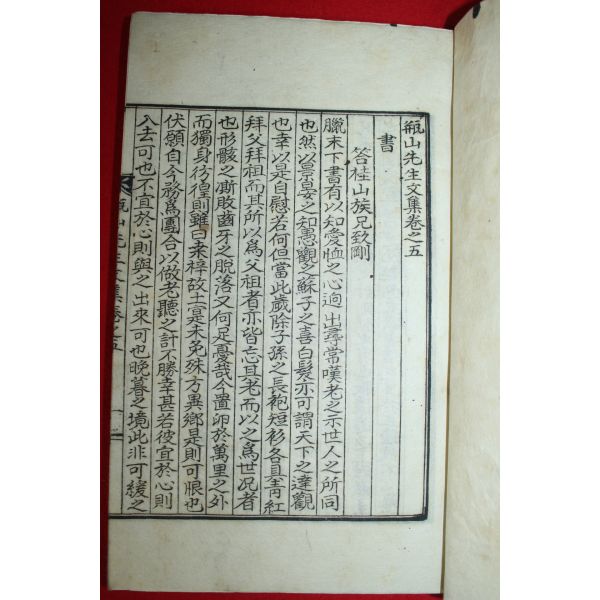 甁山先生文集卷之五
書
答桂山族兄致剛
臘末下書有以知愛恤之心逈出尋常嘆老之示世人之所同
也然以景晏之知愚觀之蘇子之喜白髮亦可謂天下之達觀
也幸以是自慰若何但當此歲除子孫之長袍短衫各具靑紅
拜父拜祖而其所以爲父祖者亦皆忘其老而以之爲世况者
也形骸之凘敗齒牙之脫落又何足憂哉今置卵於萬里之外
而獨身彷徨則雖曰桑梓故土寔未免殊方異鄕是則可恨也
伏願自今務爲團合以做老聽之計不勝幸甚若彼宜於心則
入去可也不宜於心則與之出來可也晩暮之境此非可緩之
甁山先生文集卷之五 一